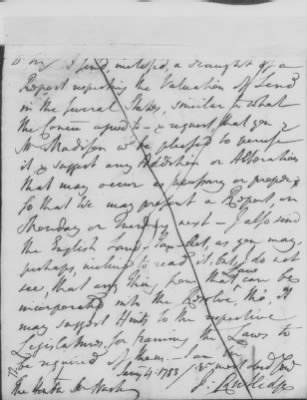 Sir I send, inclosed, a draught of a
Report respecting the Valuation of Land
in the several States, similar to what
the Comee agreed to – & request, that you &
Mr Madison wd be pleased to peruse
it & suggest any Addition or Alteration
that may occur as necessary or proper,
so that we may present a Report, on
Monday or Tuesday next – I also send
the English Land-Tax-Act, as you may,
perhaps, incline to read it, but I do not
see, that any thing from that Law can be
incorporated with the Resolve, tho' it
may suggest Hints to the respective
Legislatures for framing the Laws to
be required of them – I am Sir
Jany 4. 1783
J: Rutledge
The Honble Mr